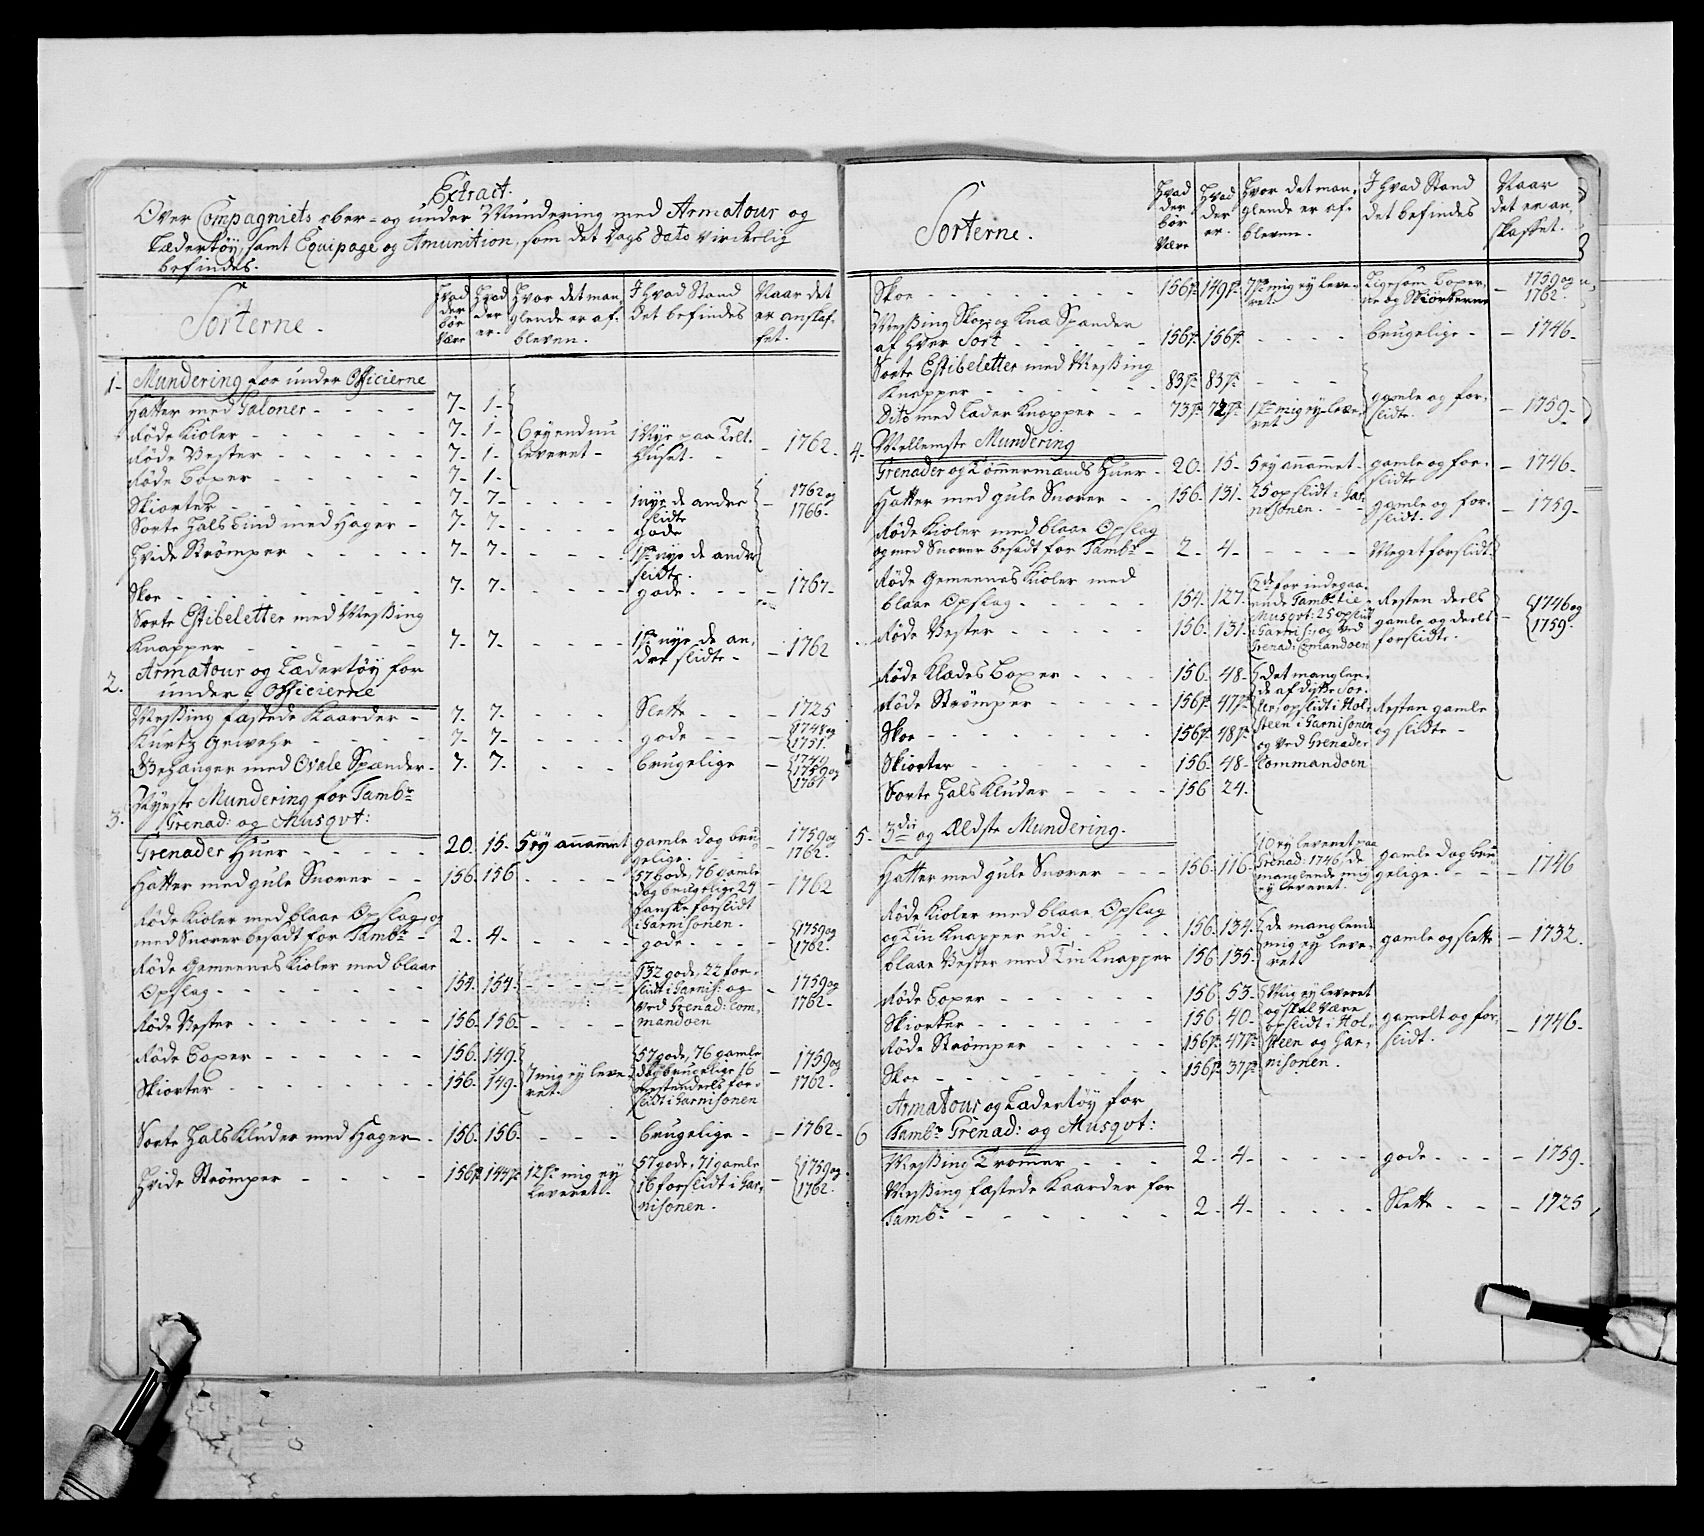 Extract.
Over Compagniets ober- og under Mundering med Armatour og
Lædertøy, samt Equipage og Amunition, som det Dags Dato virckelig
befindes.
Sorterne.
Hvad der bör være
Hvad der er.
Hvor det manglende er afbleven.
I hvad Stand det befindes
Naar det er anskaffet.
1. Mundering for under Officierne
Hatter med Galoner - 7. 1.
Røde Kioler - 7. 1. 6 ey endnu 1 Nye paa Telt
Røde Vester - 7. 1. leveret - Huset. - 1762.
Røde Boxer - 7. 1.
Skiorter - 7. 7. 1 nye de andre slidte 1762 og 1766.
Sorte Hals Bind med Hager - 7. 7. gode
Hvide Strømper - 7. 7. 1 pr nye de andre slidt.
Skoe - 7. 7. gode - 1767.
Sorte Estibeletter med Messing
Knapper - 7. 7. 1 pr nye de andre slidte - 1762
2. Armatour og Lædertøy for
under Officierne
Messing fæstede Kaarder - 7. 7. Slette - 1725
Kurtz Gewehr - 7. 7. gode - 1748 og 1751.
Gehænger med Ovale Spænder - 7. 7. brugelige - 1759 og 1767
3. Nyeste Mundering for Tambr
Grenad: og Musqvt:
Grenader Huer - 20. 15. 5 ey annammet gamle dog brugelige. 1759 og 1762.
Hatter med gule Snorer - 156. 156 57 gode, 76 gamle dog brugelige 24 ganske forslidt i Garnisonen. - 1762
Røde Kioler med blaae Opslag, og
med Snorer besadt for Tambr - 2. 4. gode - 1759 og 1762.
Røde Gemeenes Kioler med blaae
Opslag - 154. 154. 132 gode, 22 forslidt i Garnis: og ved Grenad: Commandoen 1759 og 1762.
Røde Vester - 156. 156.
Røde Boxer - 156. 149. 7 mig ey leveret. 57 gode, 76 gamle dog brugelige 16 Resten deels forslidt i Garnisonen 1759 og 1762.
Skiorter 156. 149.
Sorte Hals Kluder med Hager - 156. 156. brugelige - 1762 -
Hvide Strømper - 156 p 144 p 12 pr mig ey leveret. 57 gode, 71 gamle 16 forslidt i Garnisonen. 1759 og 1762.
Sorterne.
Hvad der bör være
Hvad der er.
Hvor det manglende er afbleven.
I hvad Stand det befindes
Naar det er anskaffet.
Skoe - 156 p. 149 p. 7 pr mig ey leveret. Ligesom Boxerne og Skiorterne 1759 og 1762.
Messing Skoe og Knæ Spænder
af hver Sort - 156 p. 156 p. brugelige - 1746.
Sorte Estibeletter med Messing
Knapper - 83 p. 83 p.
Dito med Læder Knapper - 73 p. 72 p. 1 pr mig ey leveret gamle og forslidte. - 1759.
4. Mellemste Mundering
Grenader og Tømmermænds Huer - 20. 15. 5 ey annammet - gamle og forslidte - 1746.
Hatter med gule Snorer - 156. 131. 25 opslidt i Garnisonen. gamle og forslidt. - 1759.
Røde Kioler med blaae Opslag
og med Snorer besadt for Tambr - 2. 4. Meget forslidt.
Røde Gemeenes Kioler med
blaae Opslag - 154. 127.
Røde Vester - 156. 131. Resten deels gamle og deels forslidte. 1746 og 1759.
Røde Klædes Boxer - 156. 48. det manglende af disse Sorter opslidt i Holsteen i Garnisonen og ved Grenader Commandoen
Røde Strømper - 156 p. 47 p. Resten gamle og slidte.
Skoe - 156 p. 48 p.
Skiorter - 156. 48.
Sorte Hals Kluder - 156 24.
5. 3die og Ældste Mundering.
Hatter med gule Snorer - 156. 116. 10 ey leveret paa Grenad: 1746, de manglende mig ey leveret. gamle dog brugelige. - 1746
Røde Kioler med blaae Opslag
og Tin Knapper udi - 156. 134. de manglende mig ey leveret gamle og slette - 1732.
blaae Vester med Tin Knapper 156 135.
Røde Boxer - 156 53. Mig ey leveret og skal være opslidt i Holsteen og Garnisonen.
Skiorter - 156 40. gamelt og forslidt. - 1746.
Røde Strømper - 156 p. 47 p.
Skoe - 156 p. 37 p.
6 Armatour og Lædertøy for
Tambr Grenad: og Musqvt:
Messing Trommer - 2. 4. gode - 1759.
Messing fæstede Kaarder for
Tambr - 2. 4. Slette - 1725